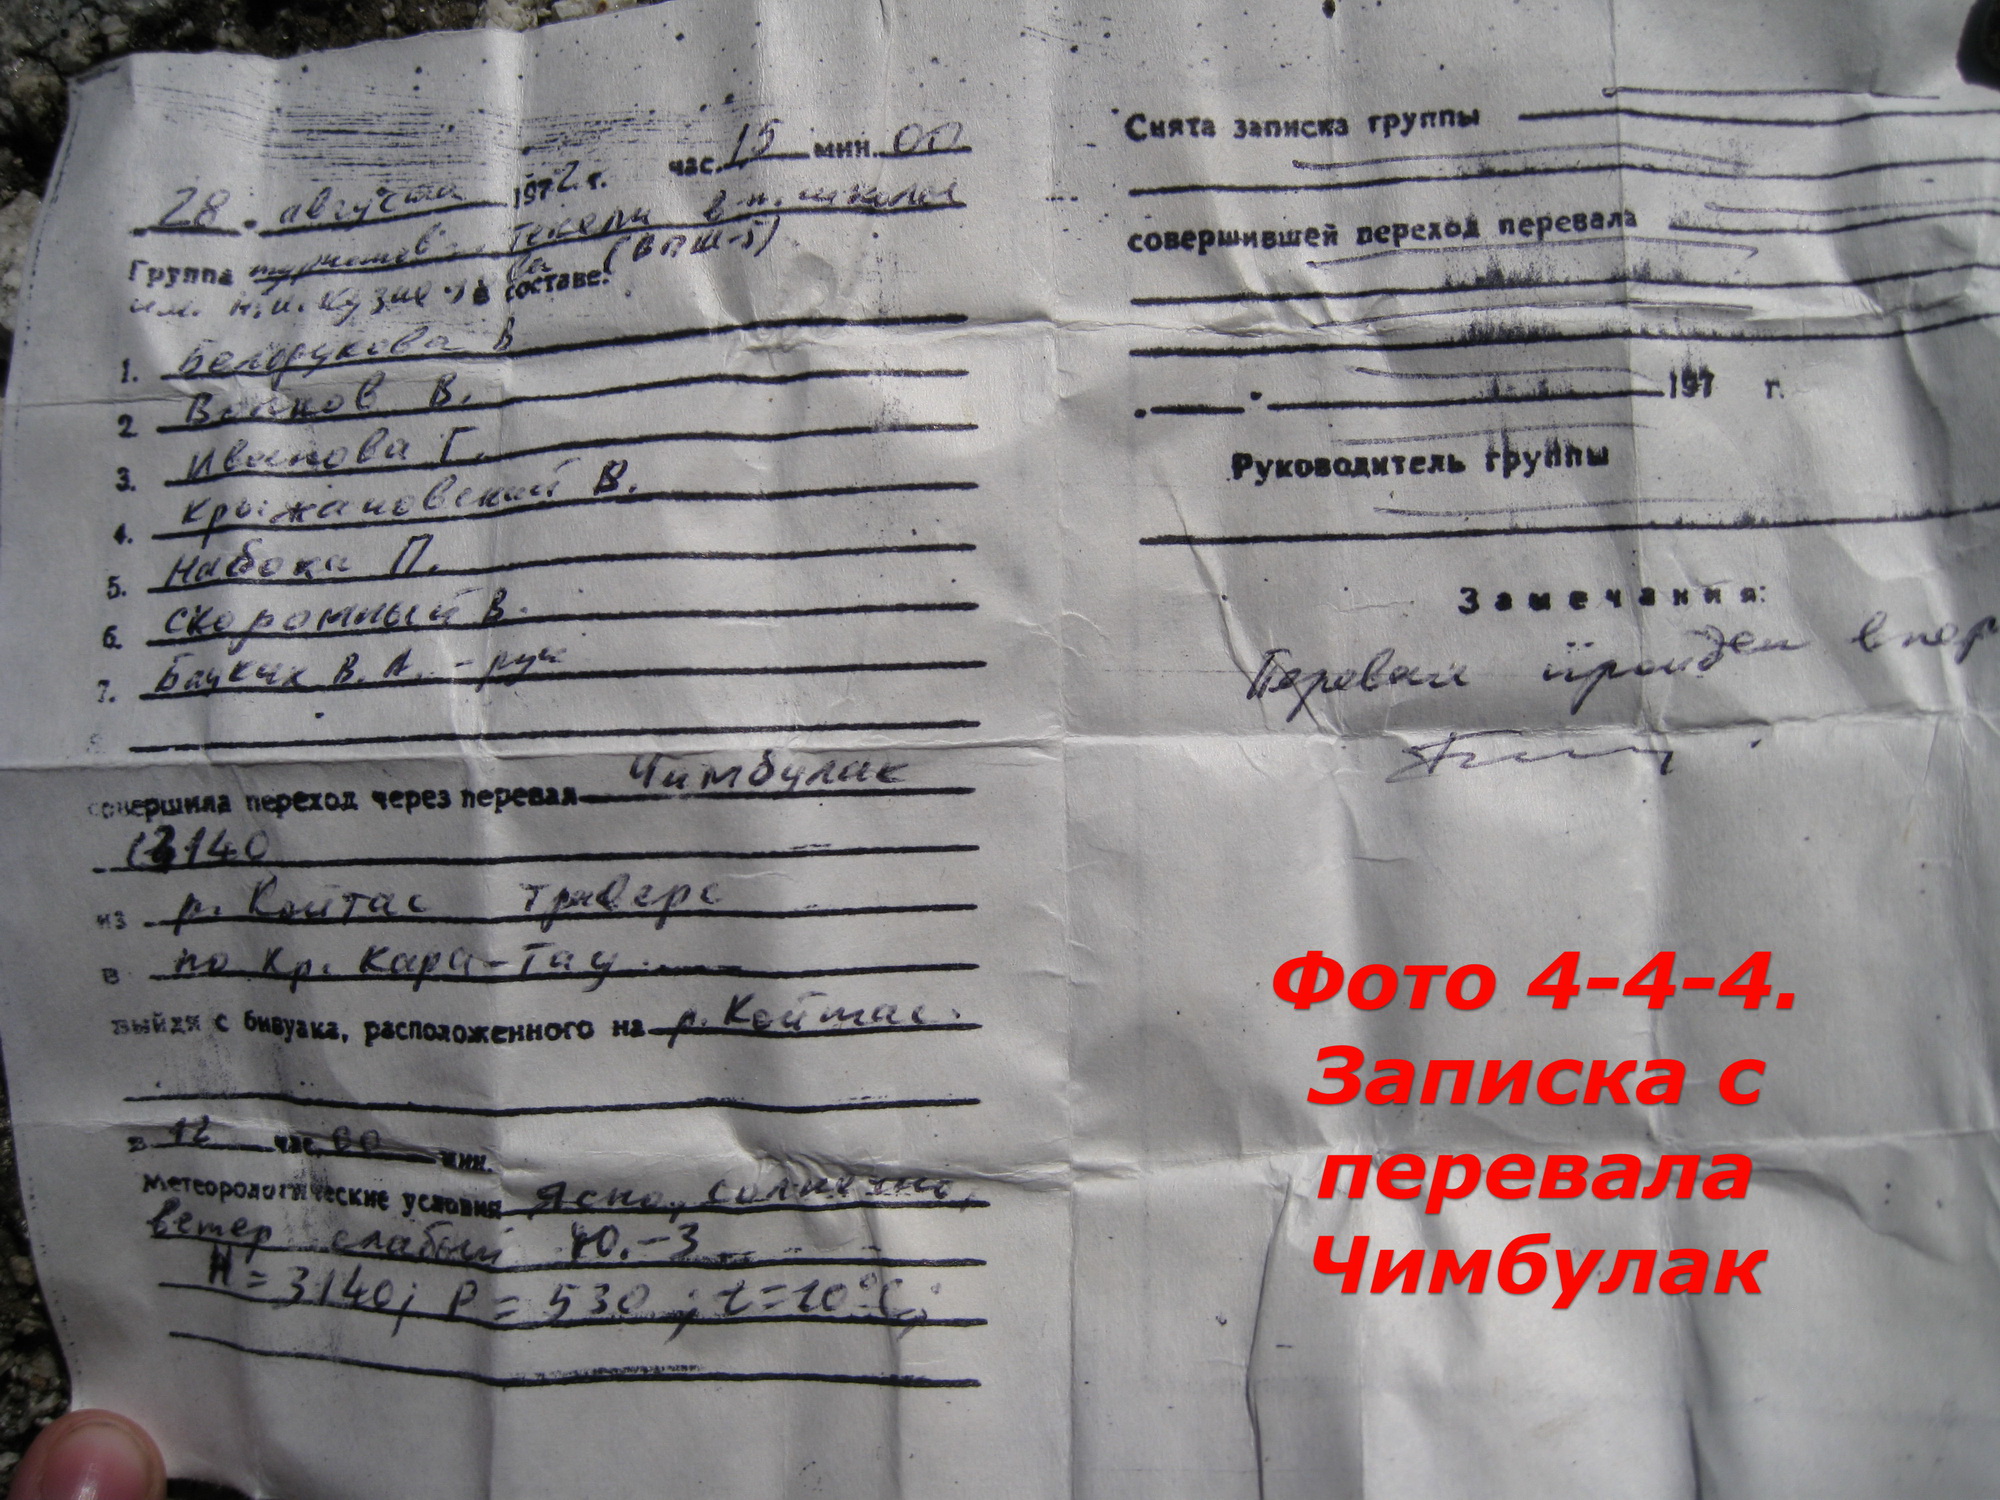 28 . августа 1972 г. час. 15 мин. 00
Группа туристов г. Текели в-п. школы
им. Н.И. Кузне в составе: (ВПШ-5)
1. Белорукова В
2 Волков В.
3. Иванова Г.
4. Крыжановский В.
5. Набока П.
6. Скоромный В.
7. В. А. - рук
8
совершила переход через перевал Чимбулак
3140
из р. Койтас траверс
в по хр. Кара-Тау
выйдя с бивуака, расположенного на р. Койтас.
в 12 час. 00 мин.
Метеорологические условия Ясно, солнечно,
ветер слабый Ю.-З
H = 3140; P = 530 ; t = 10°C;
Снята записка группы
совершившей переход перевала
197 г.
Руководитель группы
Замечания:
Перевал пройден впер
Фото 4-4-4.
Записка с
перевала
Чимбулак